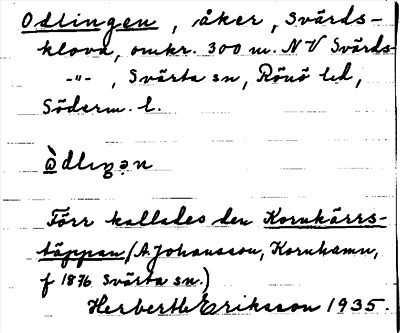 Odlingen, åker, Svärds-
klova, omkr. 300 m. NV Svärds-
-"- , Svärta sn, Rönö hd,
Söderm. l.
ὼdlin̥gən
Förr kallades den Kornkärrs-
täppan (A. Johansson, Kornhamn,
f 1876 Svärta sn.)
Herbert Eriksson 1935.